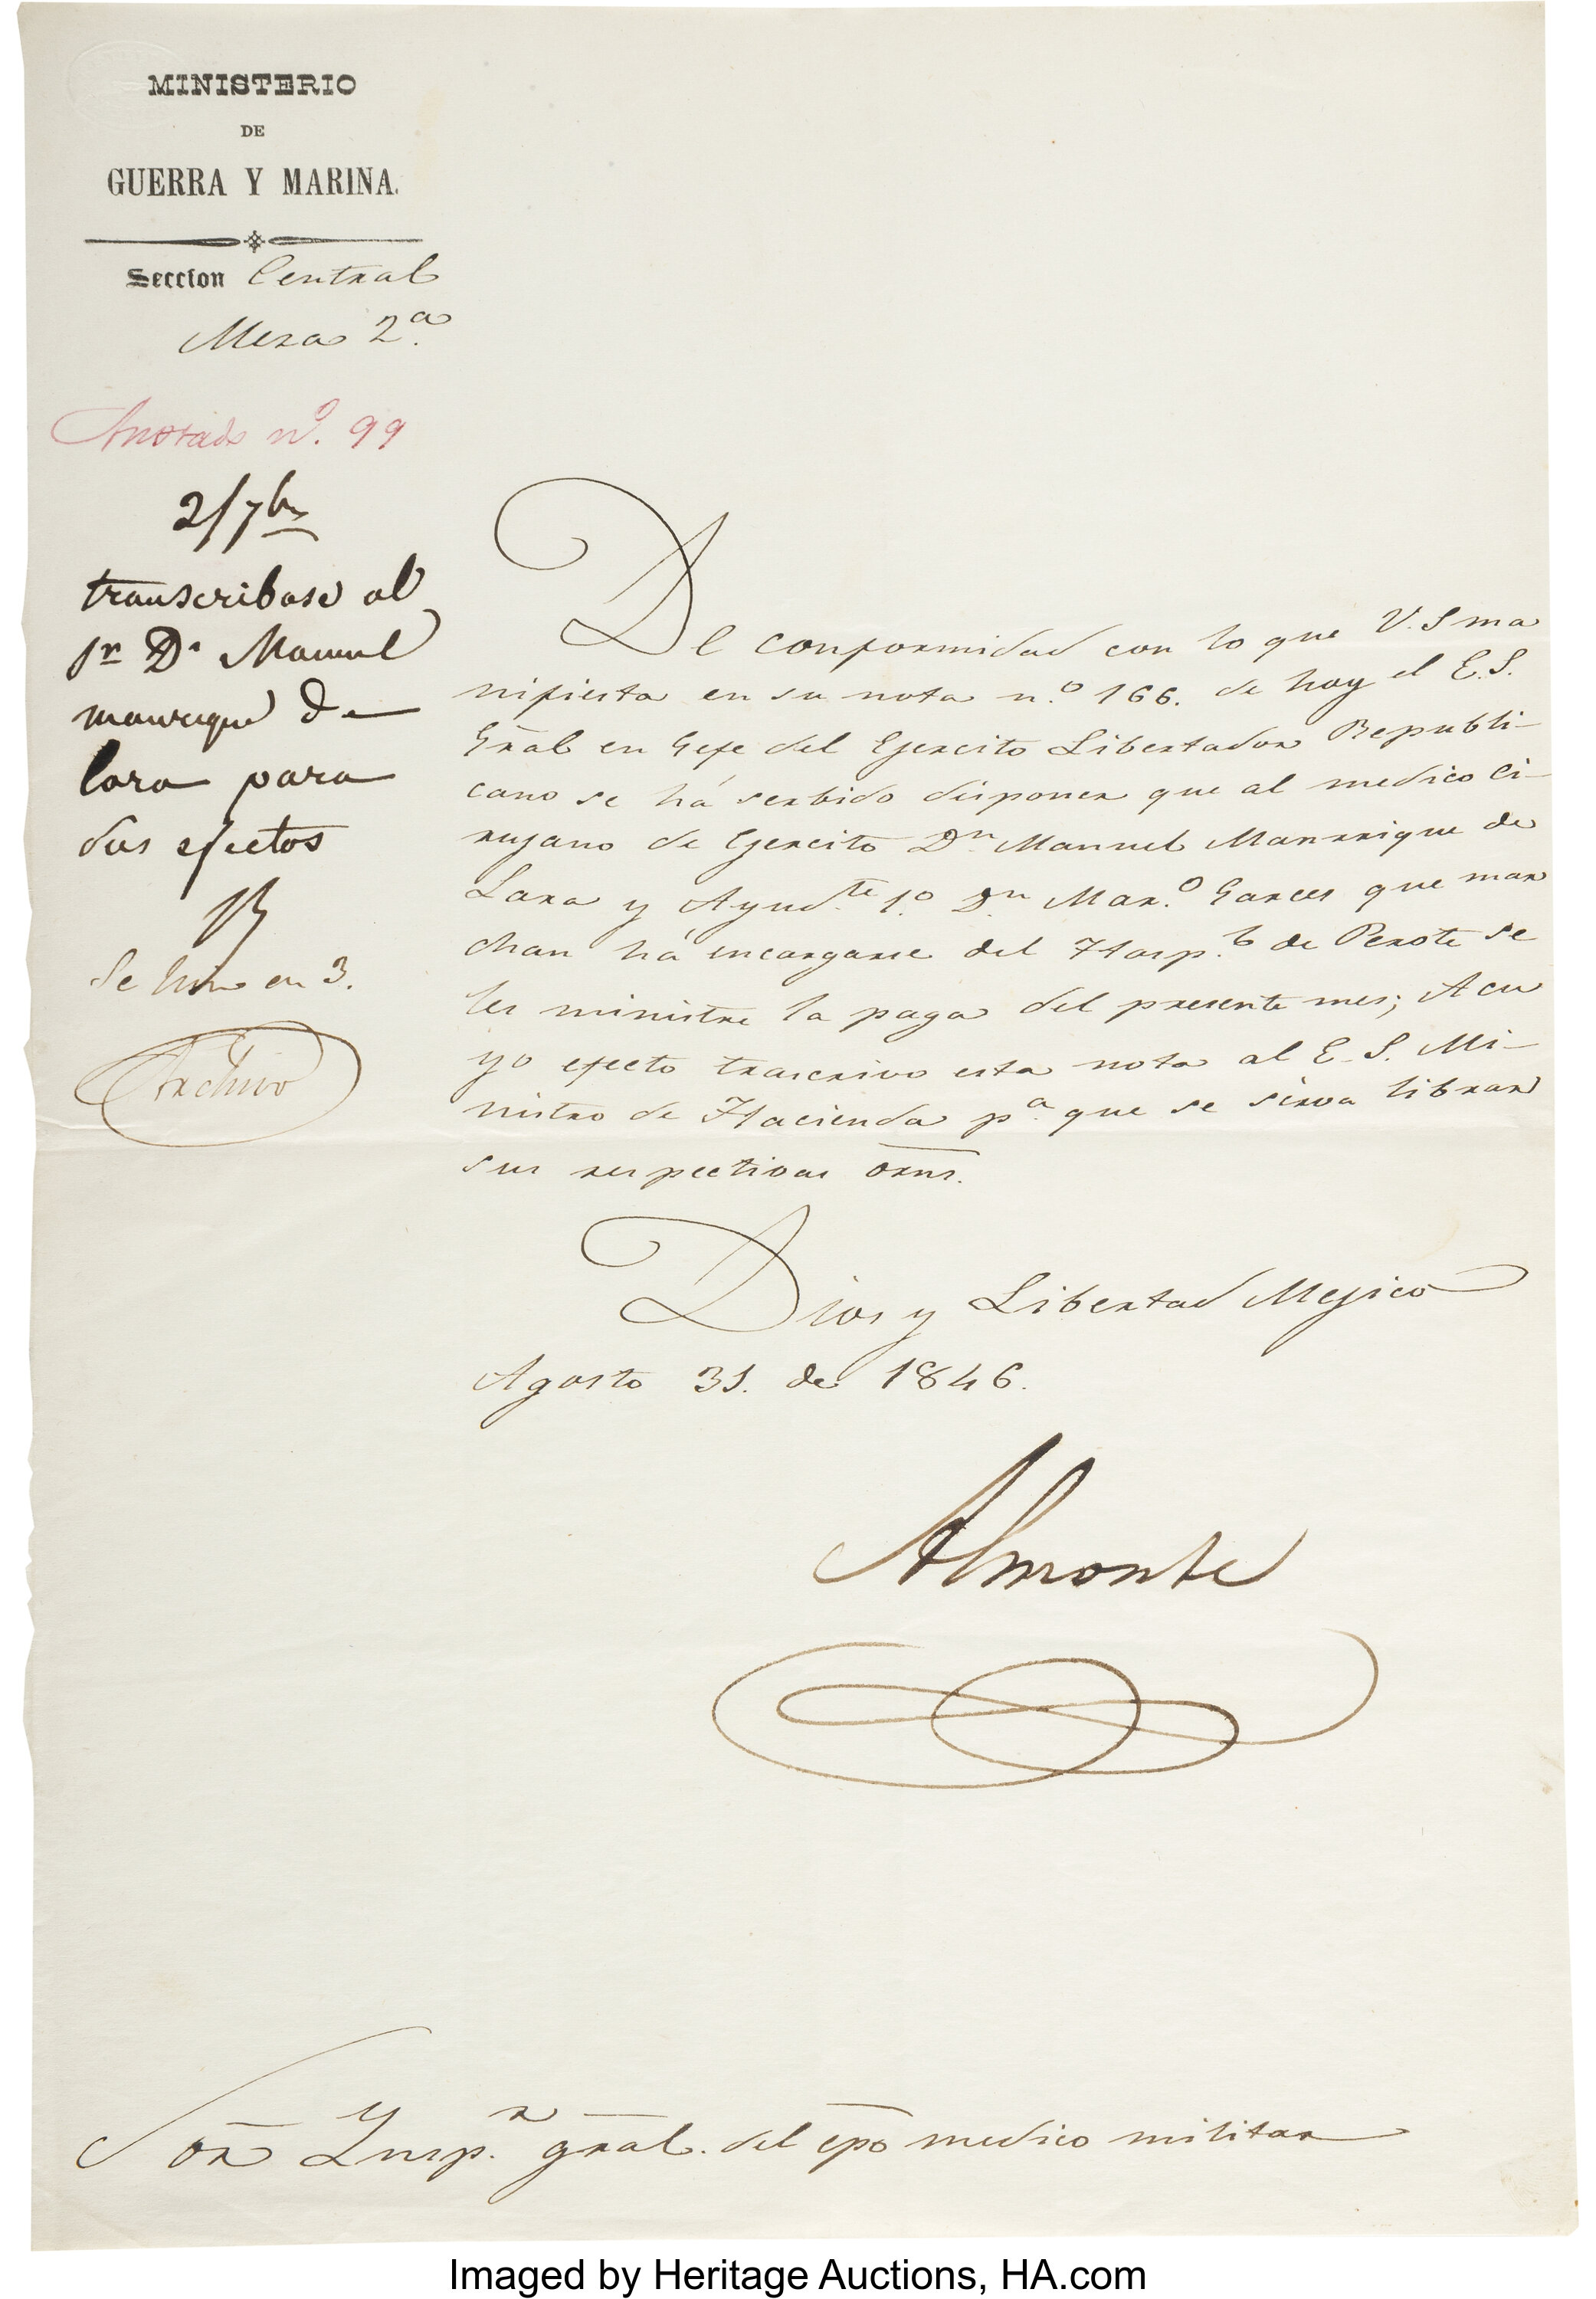 MINISTERIO
DE
GUERRA Y MARINA.
Seccion Central
Mesa 2.ª
Anotado n.º 99
2/7bre
transcribase al
Sr Dn Manuel
manrique de
lara para
sus efectos
Se hizo en 3.
Archivo
De conformidad con lo que V.S ma
nifiesta en su nota n.º 166. de hoy el E.S.
Gral en Gefe del Ejercito Libertador Republi-
cano se há serbido disponer que al medico ci-
rujano de Ejercito Dn Manuel Manrrique de
Lara y Ayud.te 1.º Dn Mar.º Garces que mar
chan há encargarse del Hosp.l de Perote se
les ministre la paga del presente mes; A cu
yo efecto trascrivo esta nota al E. S. Mi-
nistro de Hacienda p.ª que se sirva librar
sus respectivas orns.
Dios y Libertad Mejico
Agosto 31. de 1846.
Almonte
Sor Ynsp.r gral. del cpo medico militar
Imaged by Heritage Auctions, HA.com